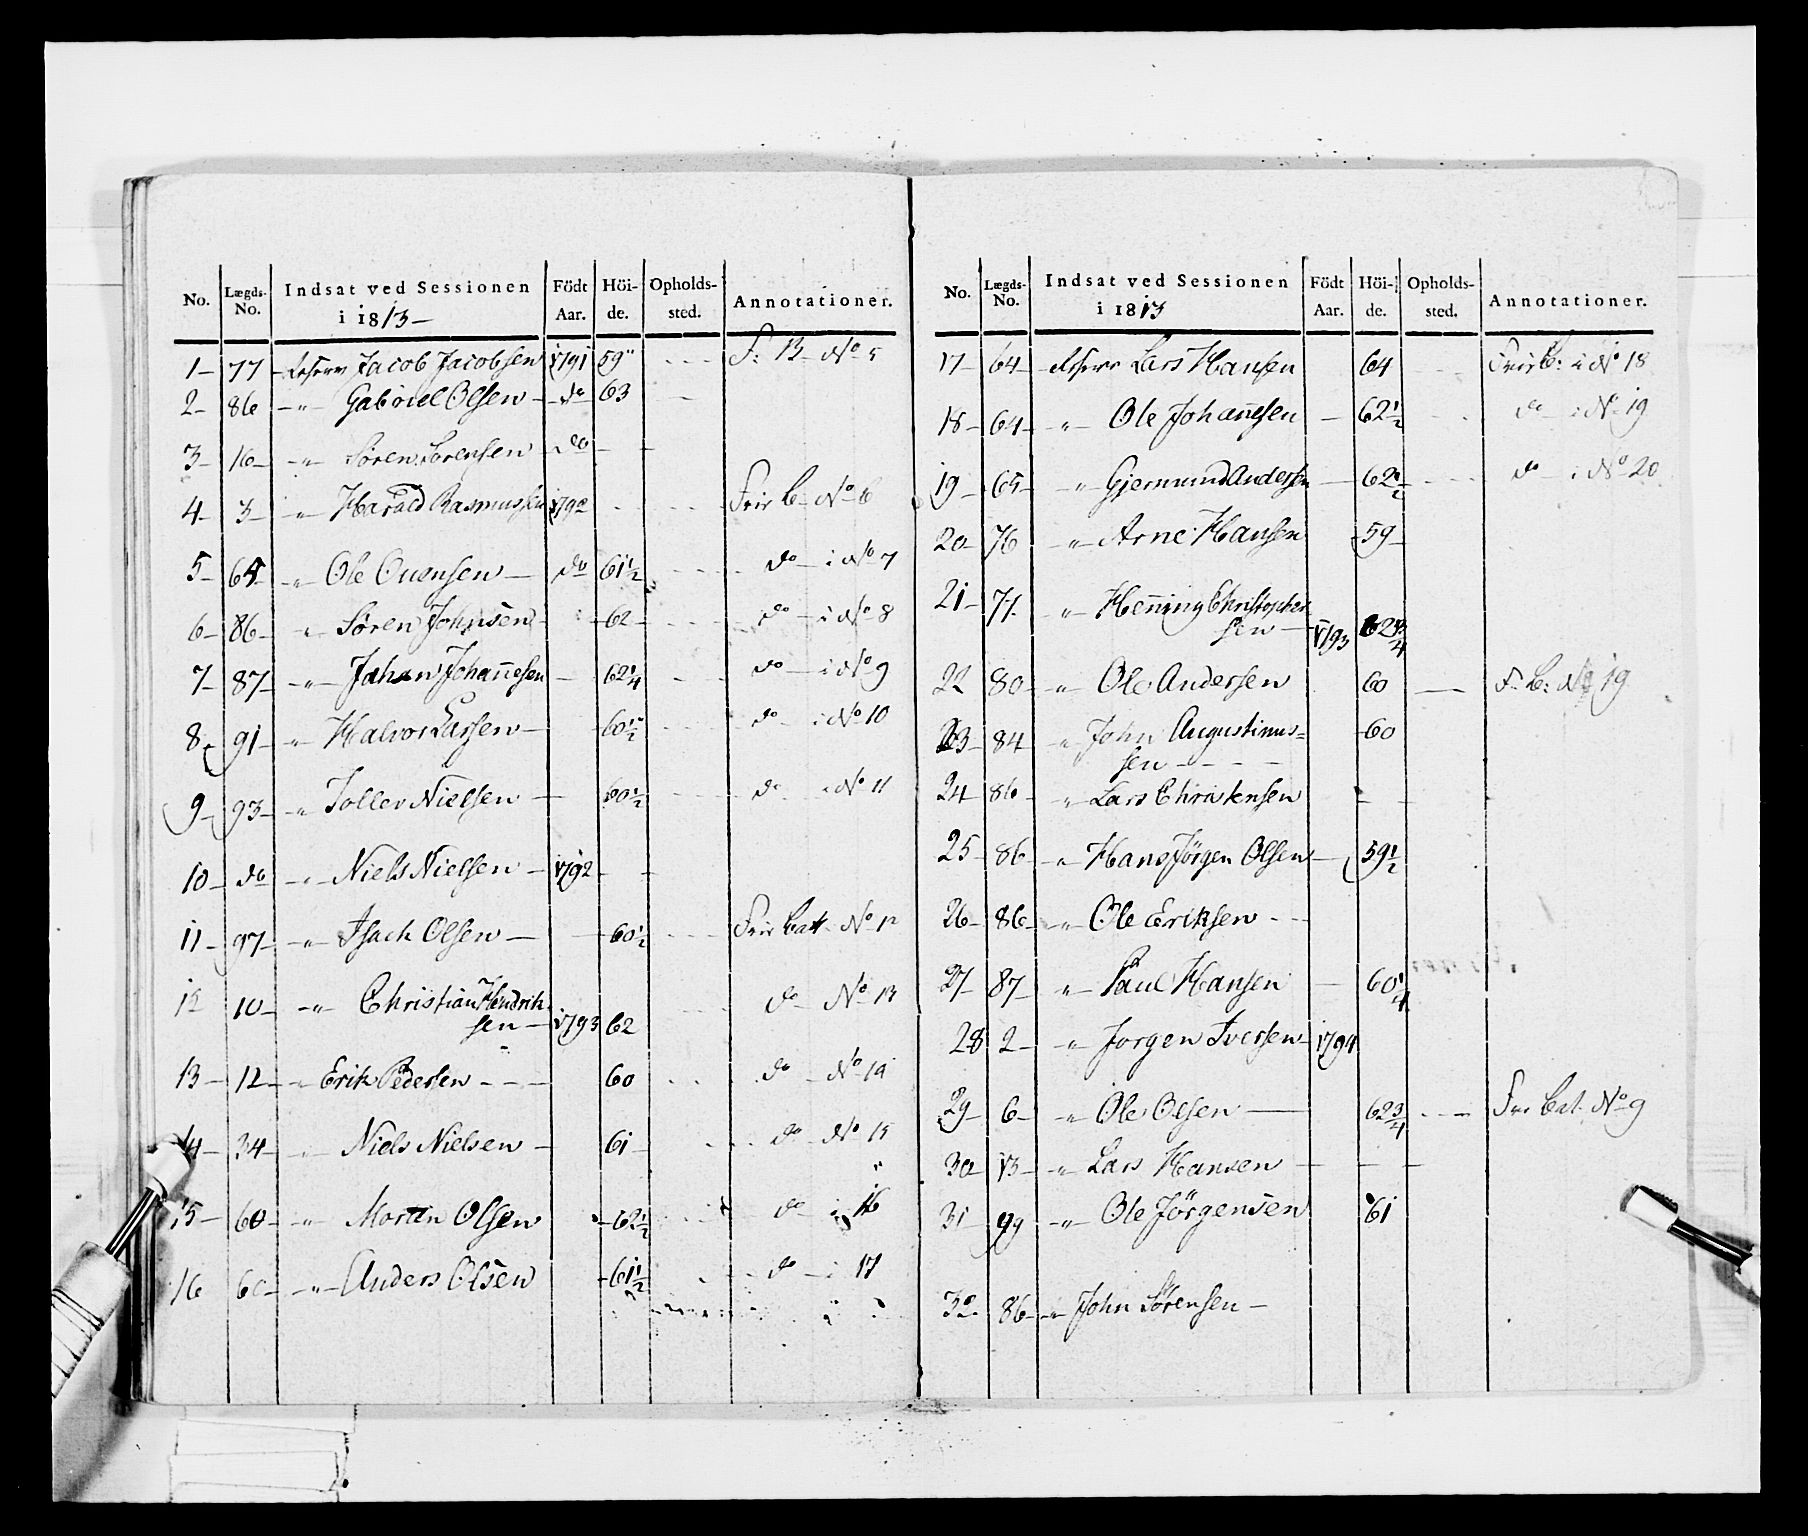 No. Lægds-No. Indsat ved Sessionen i 1813 – Födt Aar. Höi-de. Opholds-sted. Annotationer.
1 – 77 – Jacob Jacobsen 1791 59" - - - F: B – No 5
2 – 86 – „ – Gabriel Olsen – do – 63 - -
3 – 16 – „ – Sören Sörensen – do – –
4 – 3 – „ – Harald Rasmussen 1792 - - - Frir b – No 6
5 – 65 – „ – Ole Ouensen – do 61½ - - - do – i No 7
6 – 86 – „ – Sören Johnsen – 62 – - - - do – i No 8
7 – 87 – „ – Johan Johannesen – 62¼ - - - do – i No 9
8 – 91 – „ – Halvor Larsen – 60½ - - - do – i No 10
9 – 93 – „ Tollev Nielsen – 60½ - - - do i No 11
10 – do – „ – Niels Nielsen – 1792 – –
11 – 97 – „ – Isach Olsen – 60½ - - - Frir batt – No 12
12 10 – „ Christian Hendrik-
sen – 1793 62 - - - do No 13
13 – 12 – „ Erik Pedersen - - - 60 - - - do – No 14
14 – 34 – „ Niels Nielsen – 61 – - - - do – No 15
15 – 60 – „ – Morten Olsen – 62½ - - - do – i 16
16 60 – „ – Anders Olsen – 61½ - - - do – i 17
No. Lægds-No. Indsat ved Sessionen i 1813 Födt Aar. Höi-de. Opholds-sted. Annotationer.
17 – 64 – Lars Hansen 64 - - Frir b: i No 18
18 – 64 – „ Ole Johannesen – 62½ - - do – i No 19
19 – 65 – „ Gjermund Andersen – 62½ - - - do i No 20
20 – 76 – „ Arne Hansen 59 –
21 – 77 – „ Henning Christopher-
sen – 1793 62¾
22 80 – „ Ole Andersen 60 — F. b: No 19
23 – 84 – „ John Augustinus= 60
sen - - - -
24 – 86 – „ Lars Christensen – –
25 – 86 – „ Hans Jörgen Olsen – 59½
26 – 86 – „ Ole Eriksen - - -
27 – 87 – „ Paul Hansen – 60¼
28 2 – „ Jorgen Iversen – 1794
29 – 6 – „ Ole Olsen — 62¾ - - - Frir bat. No 9
30 – 13 – „ Lars Hansen – – –
31 – 99 – „ Ole Jörgensen 61
32 – 86 – „ John Sörensen –